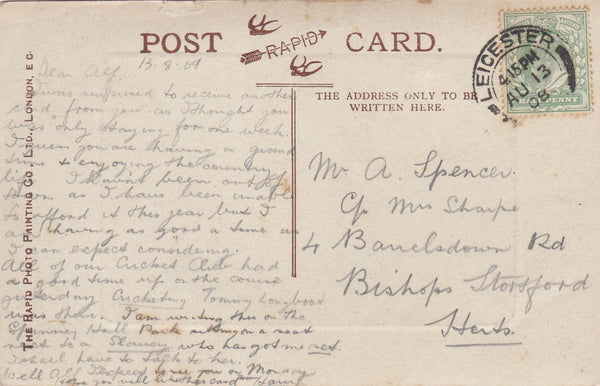 POST CARD.
RAPID
THE ADDRESS ONLY TO BE
WRITTEN HERE.
THE RAPID PHOTO PRINTING CO., LTD., LONDON, E C.
LEICESTER
4.15 PM
AU 13
08
HALFPENNY
13-8-09
Dear Alf,
I was surprised to receive another
card from you as I thought you
was only staying for one week.
I guess you are having a grand
time & enjoying the country
life. I haven't been out of
town as I have been unable
to afford it this year but I
am having as good a time as
I can expect considering.
All of our Cricket Club had
a good time up on the course
yesterday Cricketing Tommy Longboat
was there. I am writing this on the
Spinney Hill Park sitting on a seat
next to a who has got me
I shall have to talk to her.
Well Alf I expect to see you on Monday
you will another card Harry
Mr A. Spencer
C/o Mrs Sharpe
4 Barrelsdown Rd
Bishops Stortford
Herts.